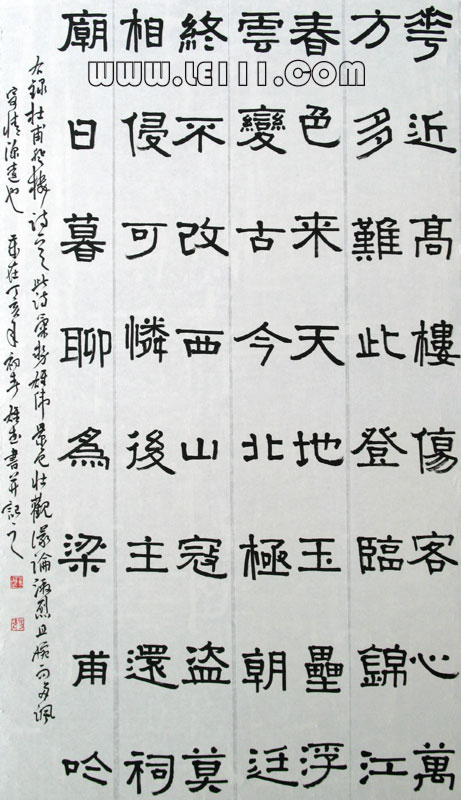 華近高樓傷客心萬
方多難此登臨錦江
春色来天地玉壘浮
雲變古今北極朝廷
終不改西山寇盜莫
相侵可憐後主還祠
廟日暮聊為梁甫吟
右録杜甫登樓詩一首此詩氣勢雄偉景色壮觀議論激烈且
寄情深遠也 歲在丁亥年初春 書并記之
www.LEIIII.com